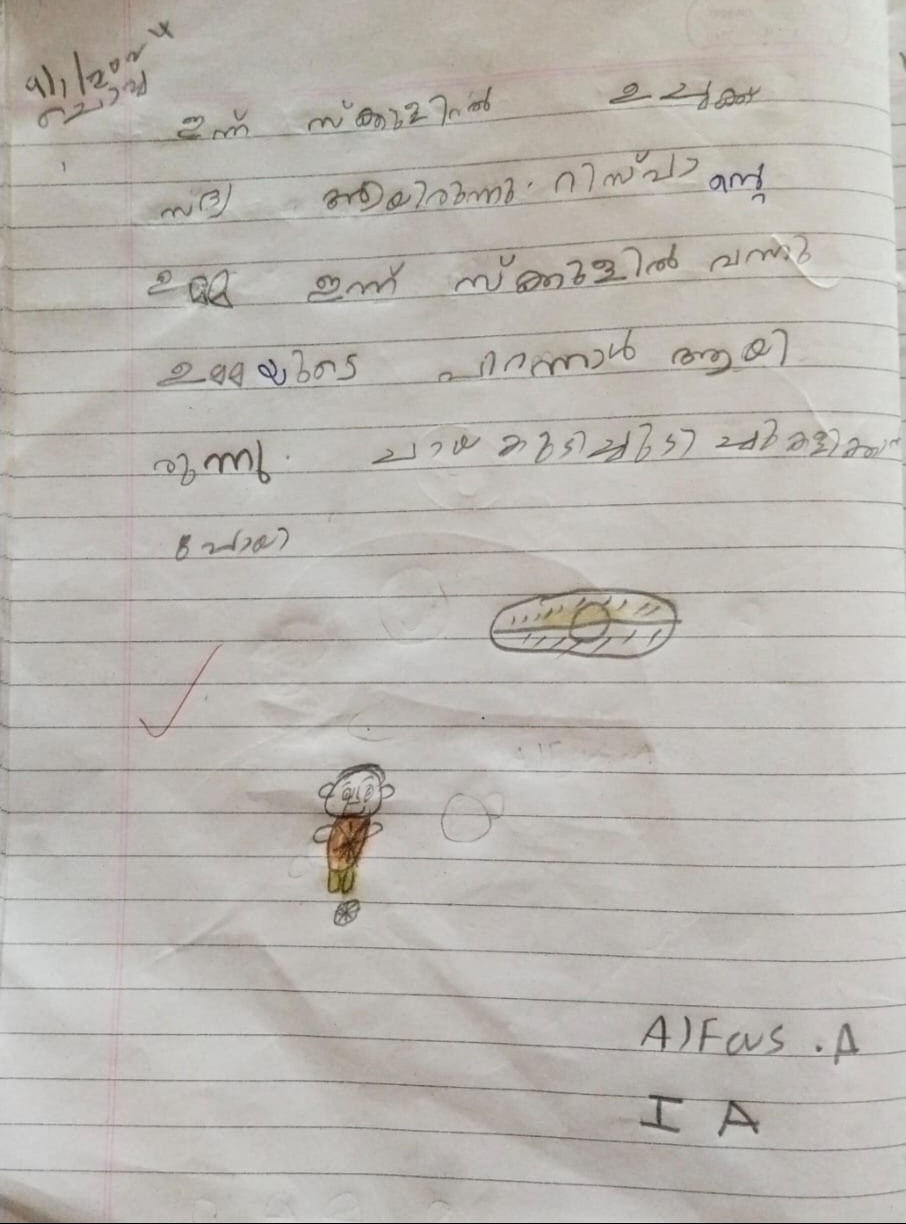 9/1/2024
ചൊവ്വ
ഇന്ന് സ്ക്കൂളിൽ ഉച്ചക്ക്
സദ്യ ആയിരുന്നു. റിസ്‌വാ ന്റെ
ഉമ്മ ഇന്ന് സ്ക്കൂളിൽ വന്നു
ഉമ്മയുടെ പിറന്നാൾ ആയി
രുന്നു. ചായ കുടിച്ചു കളിക്കാൻ
പോയി
Alfas . A
I A